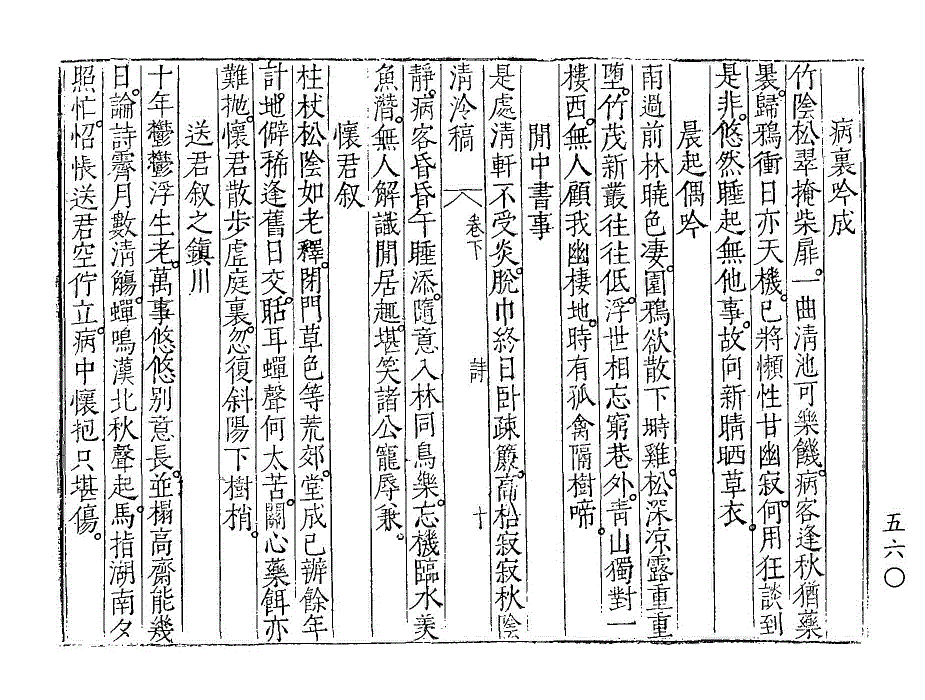 病裏吟成
竹陰松翠掩柴扉。一曲淸池可樂饑。病客逢秋猶藥
裹。歸鴉衝日亦天機。已將懶性甘幽寂。何用狂談到
是非。悠然睡起無他事。故向新晴晒草衣。
晨起偶吟
雨過前林曉色凄。園鴉欲散下塒雞。松深凉露重重
墮。竹茂新叢往往低。浮世相忘窮巷外。靑山獨對一
樓西。無人顧我幽棲地。時有孤禽隔樹啼。
閒中書事
是處淸軒不受炎。脫巾終日卧疎簾。高梧寂寂秋陰
淸泠稿 卷下 詩 十
靜。病客昏昏午睡添。隨意入林同鳥樂。忘機臨水羨
魚潛。無人解識閒居趣。堪笑諸公寵辱兼。
懷君叙
柱杖松陰如老釋。閉門草色等荒郊。堂成已辦餘年
計。地僻稀逢舊日交。聒耳蟬聲何太苦。關心藥餌亦
難抛。懷君散步虛庭裏。忽復斜陽下樹梢。
送君叙之鎭川
十年鬱鬱浮生老。萬事悠悠別意長。並榻高齋能幾
日。論詩霽月數淸觴。蟬鳴漢北秋聲起。馬指湖南夕
照忙。怊悵送君空佇立。病中懷抱只堪傷。
五六〇